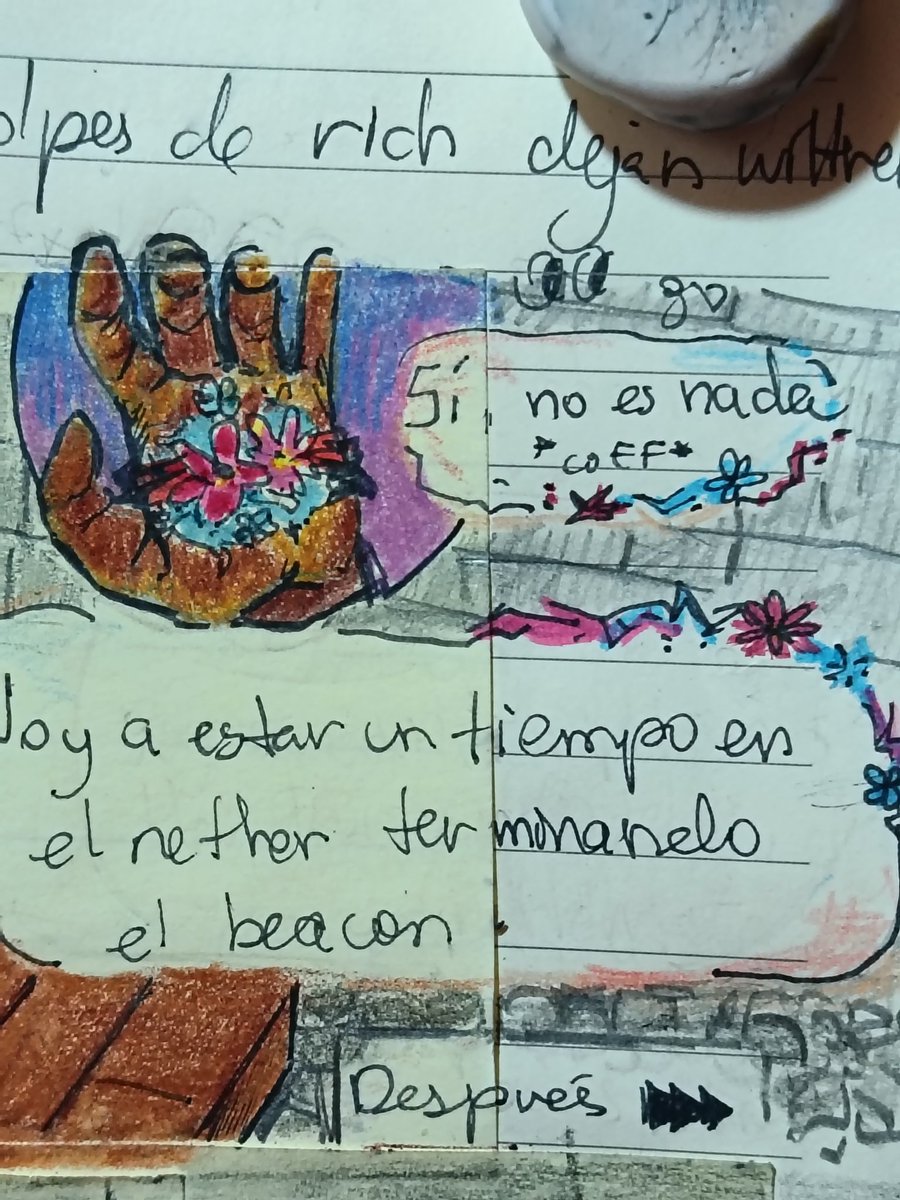 olpes de rich dejan
Sí, no es nada
*coff*
Voy a estar un tiempo en
el nether terminanelo
el beacon
Después